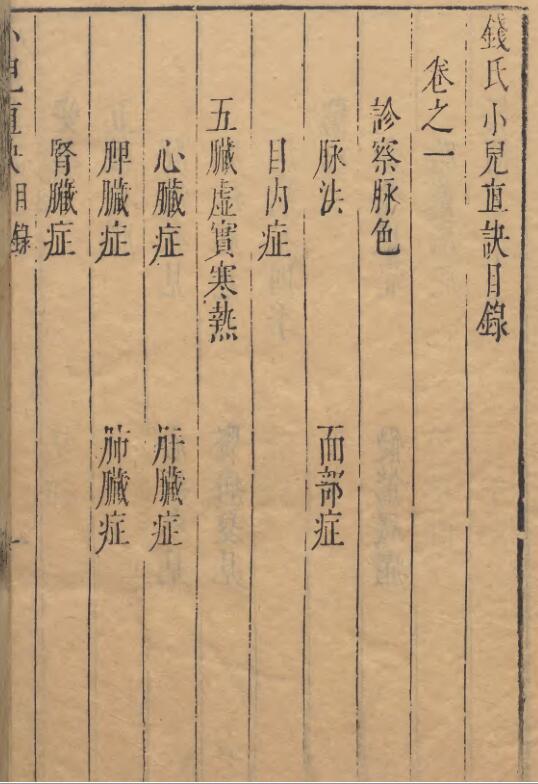 錢氏小兒直訣目錄
卷之一
診察脉色
脉法 面部症
目内症
五臟虛實寒熱
心臟症 肝臟症
脾臟症 肺臟症
腎臟症
小兒直訣 目錄 一